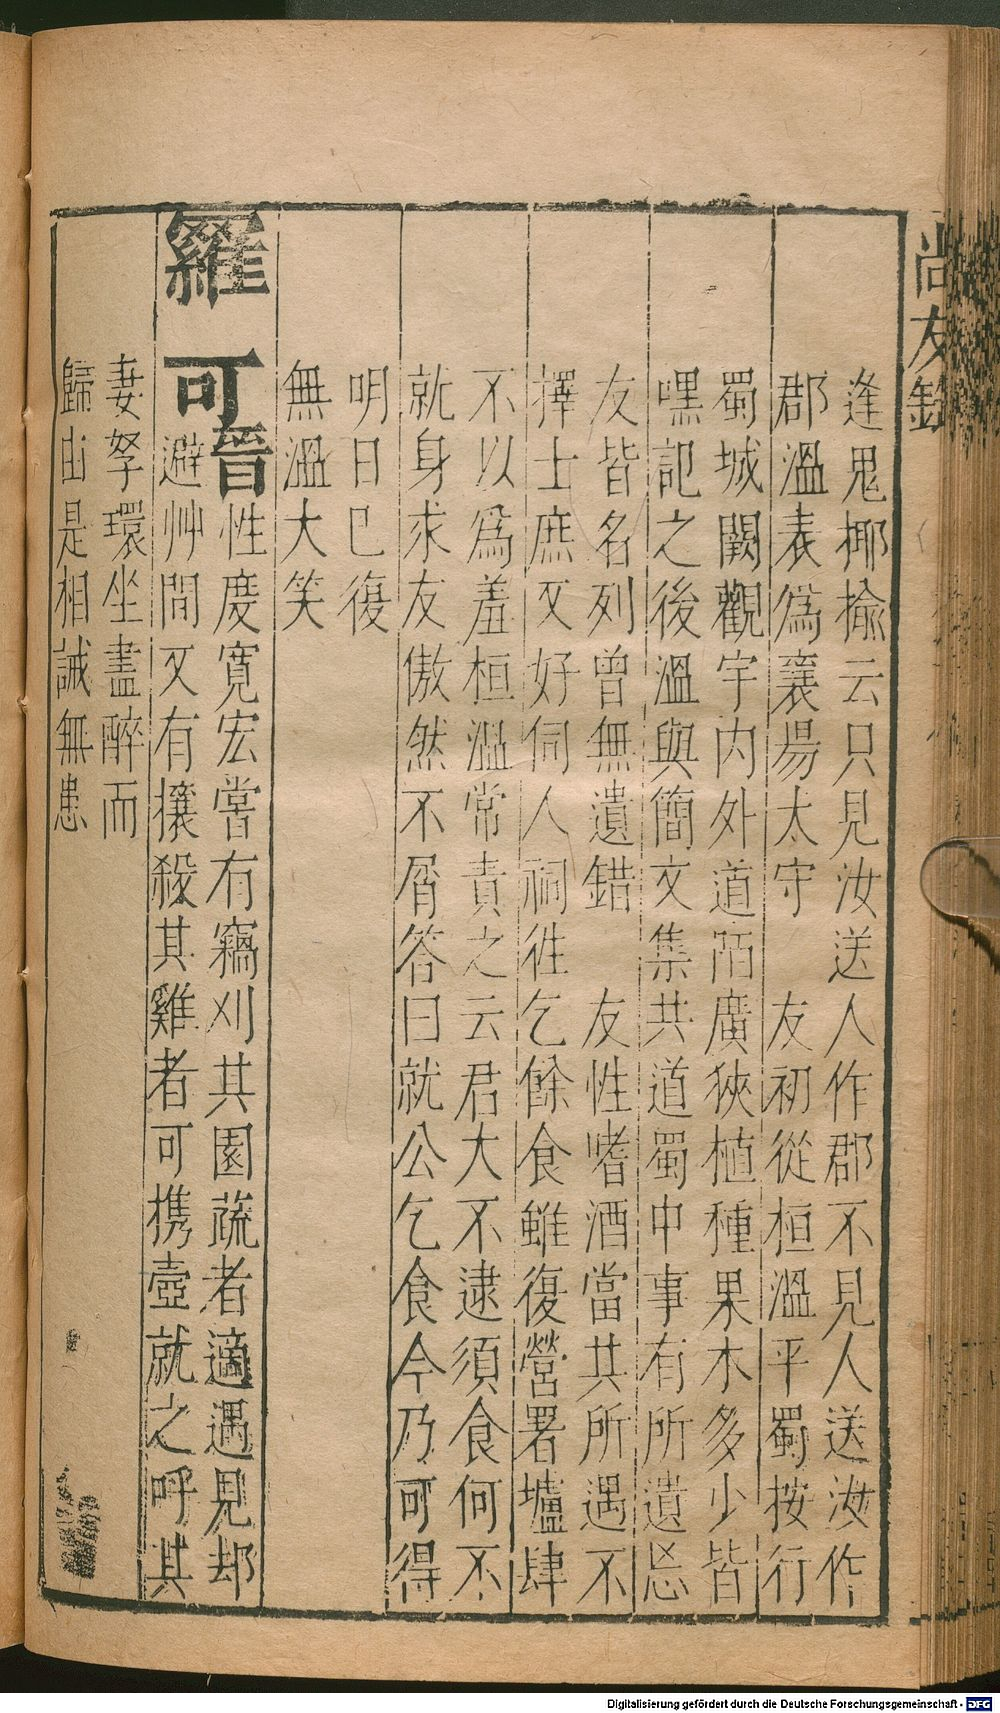 尚友錄
逢鬼揶揄云只見汝送人作郡不見人送汝作
郡溫表爲襄昜太守　友初從桓溫平蜀按行
蜀城闕觀宇內外道陌廣狹植種果木多少皆
嘿記之後溫與簡文集共道蜀中事有所遺忘
友皆名列曾無遺錯　友性嗜酒當共所遇不
擇士庶又好伺人祠徃乞餘食雖復營署壚肆
不以爲羞桓溫常責之云君大不逮須食何不
就身求友傲然不屑答曰就公乞食今乃可得
明日已復
無溫大笑
羅可晉
性度寬宏嘗有竊刈其園蔬者適遇見却
避艸間又有攘殺其雞者可携壺就之呼其
妻孥環坐盡醉而
歸由是相誡無患
Digitalisierung gefördert durch die Deutsche Forschungsgemeinschaft - DFG